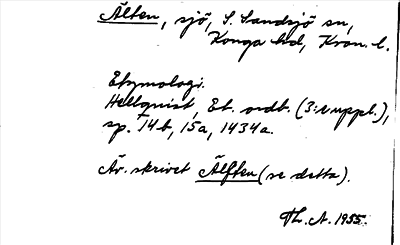 Älten, sjö, S. Sandsjö sn,
Konga hd, Kron. l.
Etymologi.
Hellquist, Et. ordb. (3:e uppl.),
sp. 14b, 15a, 1434a.
Äv. skrivet Älften (se detta).
Th. A. 1955.